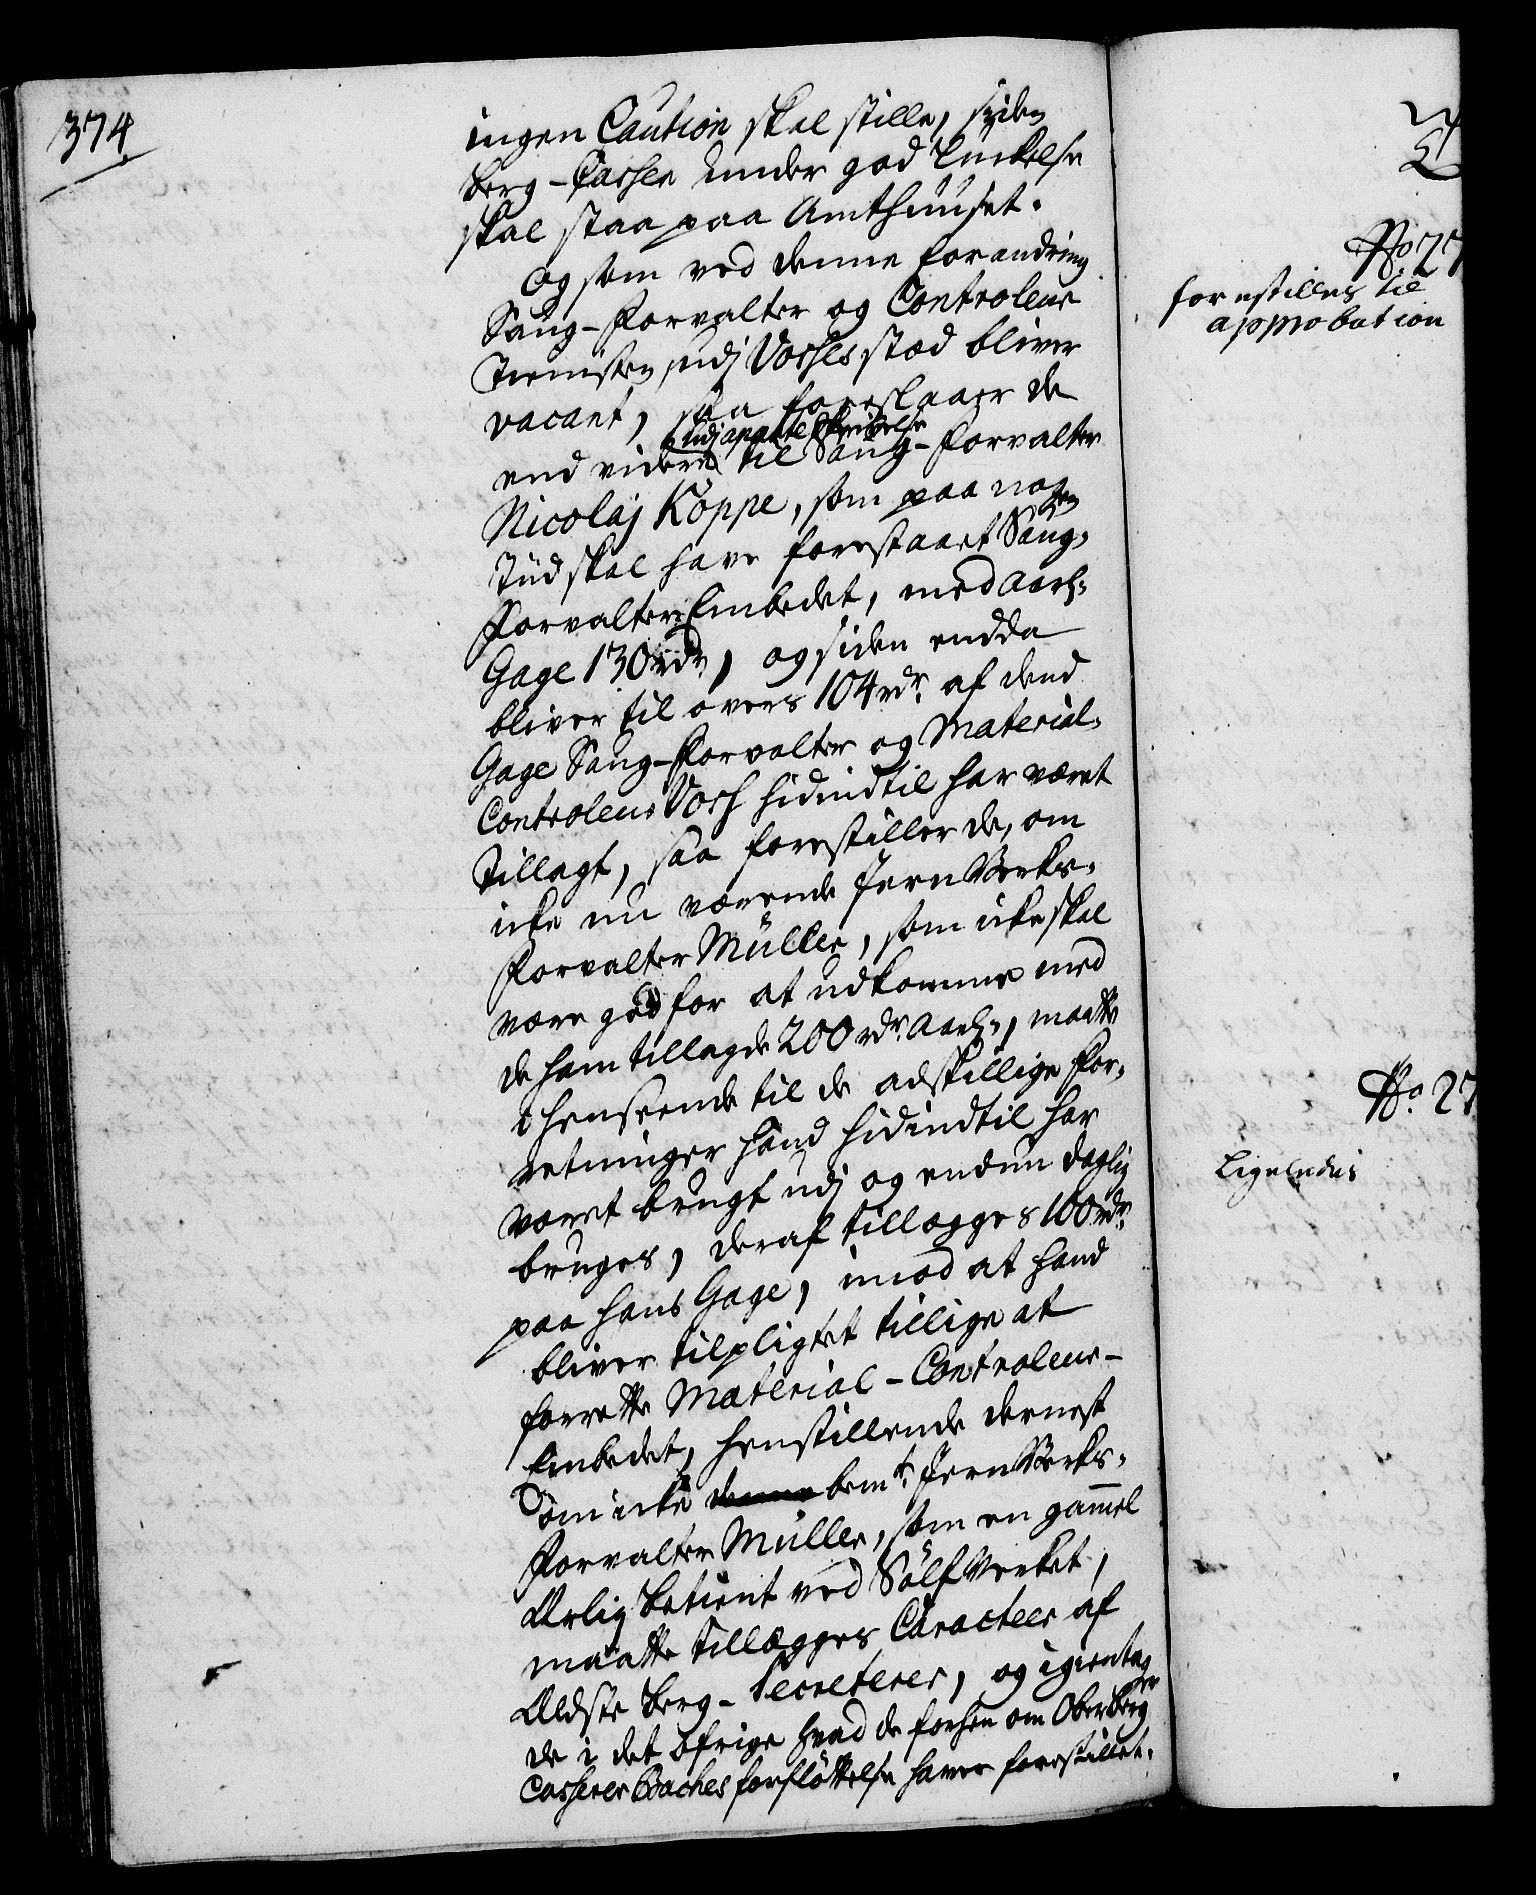 374
ingen Caution skal stille, siden
Berg-Cassen under god Lukelse
skal staa paa Amthuuset.
Og som ved denne forandring
Saug-Forvalter og Controleur
Tienisten udj Vosses stæd bliver
vacant, saa foreslaaer de
udj aparte skrivelse
end videre til Saug-Forvalter
Nicolaj Köppe, som paa nogen
Tiid skal have forestaaet Saug-
Forvalter Embedet, med aarl:
Gage 130 rdr, og siden endda
bliver til overs 104 rdr. af dend
Gage Saug-Forvalter og Material-
Controleur Vosh hidindtil har været
tillagt, saa forestiller de, om
icke nu værende Jern Verks-
Forvalter Müller, som icke skal
være god for at udkomme med
de ham tillagde 200 rdr. aarl:, maatte
i henseende til de adskillige For-
retninger hand hidindtil har
været brugt udj og endnu daglig
bruges, deraf tillegges 100 rdr.
paa hans Gage, imod at hand
bliver tilpligtet tillige at
forrette Material-Controleur-
Embedet, henstillende dernest
om icke bemte. Jern Verks-
Forvalter Müller, som en gammel
Ærlig betient ved Sølf Verket,
maatte tillægges Caracteer af
Ældste Berg-Secreterer, og igientager
de i det øfrige hvad de forhen om Ober Berg
Casserer Baches forfløttelse haver forestillet.
No. 27
forestilles til
approbation
No. 27
Ligeledes